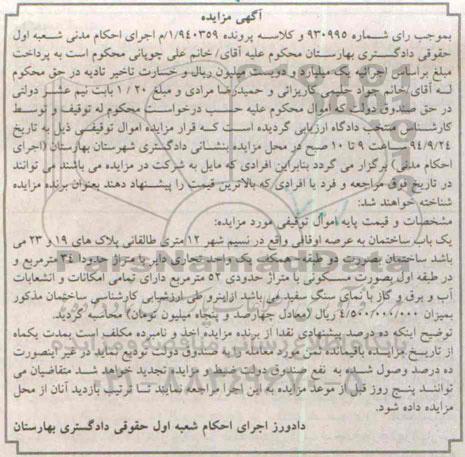 آگهی مزایده
بموجب رای شماره ۹۳۰۹۹۵ و کلاسه پرونده ۱/۹۴۰۳۵۹/م اجرای احکام مدنی شعبه اول
حقوقی دادگستری بهارستان محکوم علیه آقای/ خانم علی چوپانی محکوم است به پرداخت
مبلغ براساس اجرائیه یک میلیارد و دویست میلیون ریال و خسارت تاخیر تادیه در حق محکوم
له آقای/خانم جواد حلیمی کاریزانی و حمیدرضا مرادی و مبلغ ۱/۲۰ بابت نیم عشر دولتی
در حق صندوق دولت که اموال محکوم علیه حسب درخواست محکوم له توقیف و توسط
کارشناس منتخب دادگاه ارزیابی گردیده است که قرار مزایده اموال توقیفی ذیل به تاریخ
۹۴/۹/۲۴ ساعت ۹ تا ۱۰ صبح در محل مزایده بنشانی دادگستری شهرستان بهارستان (اجرای
احکام مدنی) برگزار می گردد بنابراین افرادی که مایل به شرکت در مزایده می باشند می توانند
در تاریخ فوق مراجعه و فرد یا افرادی که بالاترین قیمت را پیشنهاد دهند بعنوان برنده مزایده
شناخته خواهند شد:
مشخصات و قیمت پایه اموال توقیفی مورد مزایده:
یک باب ساختمان به عرصه اوقافی واقع در نسیم شهر ۱۲ متری طالقانی پلاک های ۱۹ و ۲۳ می
باشد ساختمان بصورت دو طبقه- همکف یک واحد تجاری دایر با متراژ حدودا ۳۴ مترمربع و
در طبقه اول بصورت مسکونی با متراژ حدودی ۵۲ مترمربع دارای تمامی امکانات و انشعابات
آب و برق و گاز با نمای سنگ سفید می باشد ازاینرو طی ارزشیابی کارشناسی ساختمان مذکور
بمیزان ۴/۵۰۰/۰۰۰/۰۰۰ ریال (معادل چهارصد و پنجاه میلیون تومان) محاسبه گردید.
توضیح اینکه ده درصد پیشنهادی نقدا از برنده مزایده اخذ و نامبرده مکلف است بمدت یکماه
از تاریخ مزایده باقیمانده ثمن مورد معامله را به صندوق دولت تودیع نماید در غیر اینصورت
ده درصد وصول شده به نفع صندوق دولت ضبط و مزایده تجدید خواهد شد متقاضیان می
توانند پنج روز قبل از موعد مزایده به این اجرا مراجعه نمایند تا ترتیب بازدید آنان از محل
مزایده داده شود.
دادورز اجرای احکام شعبه اول حقوقی دادگستری بهارستان